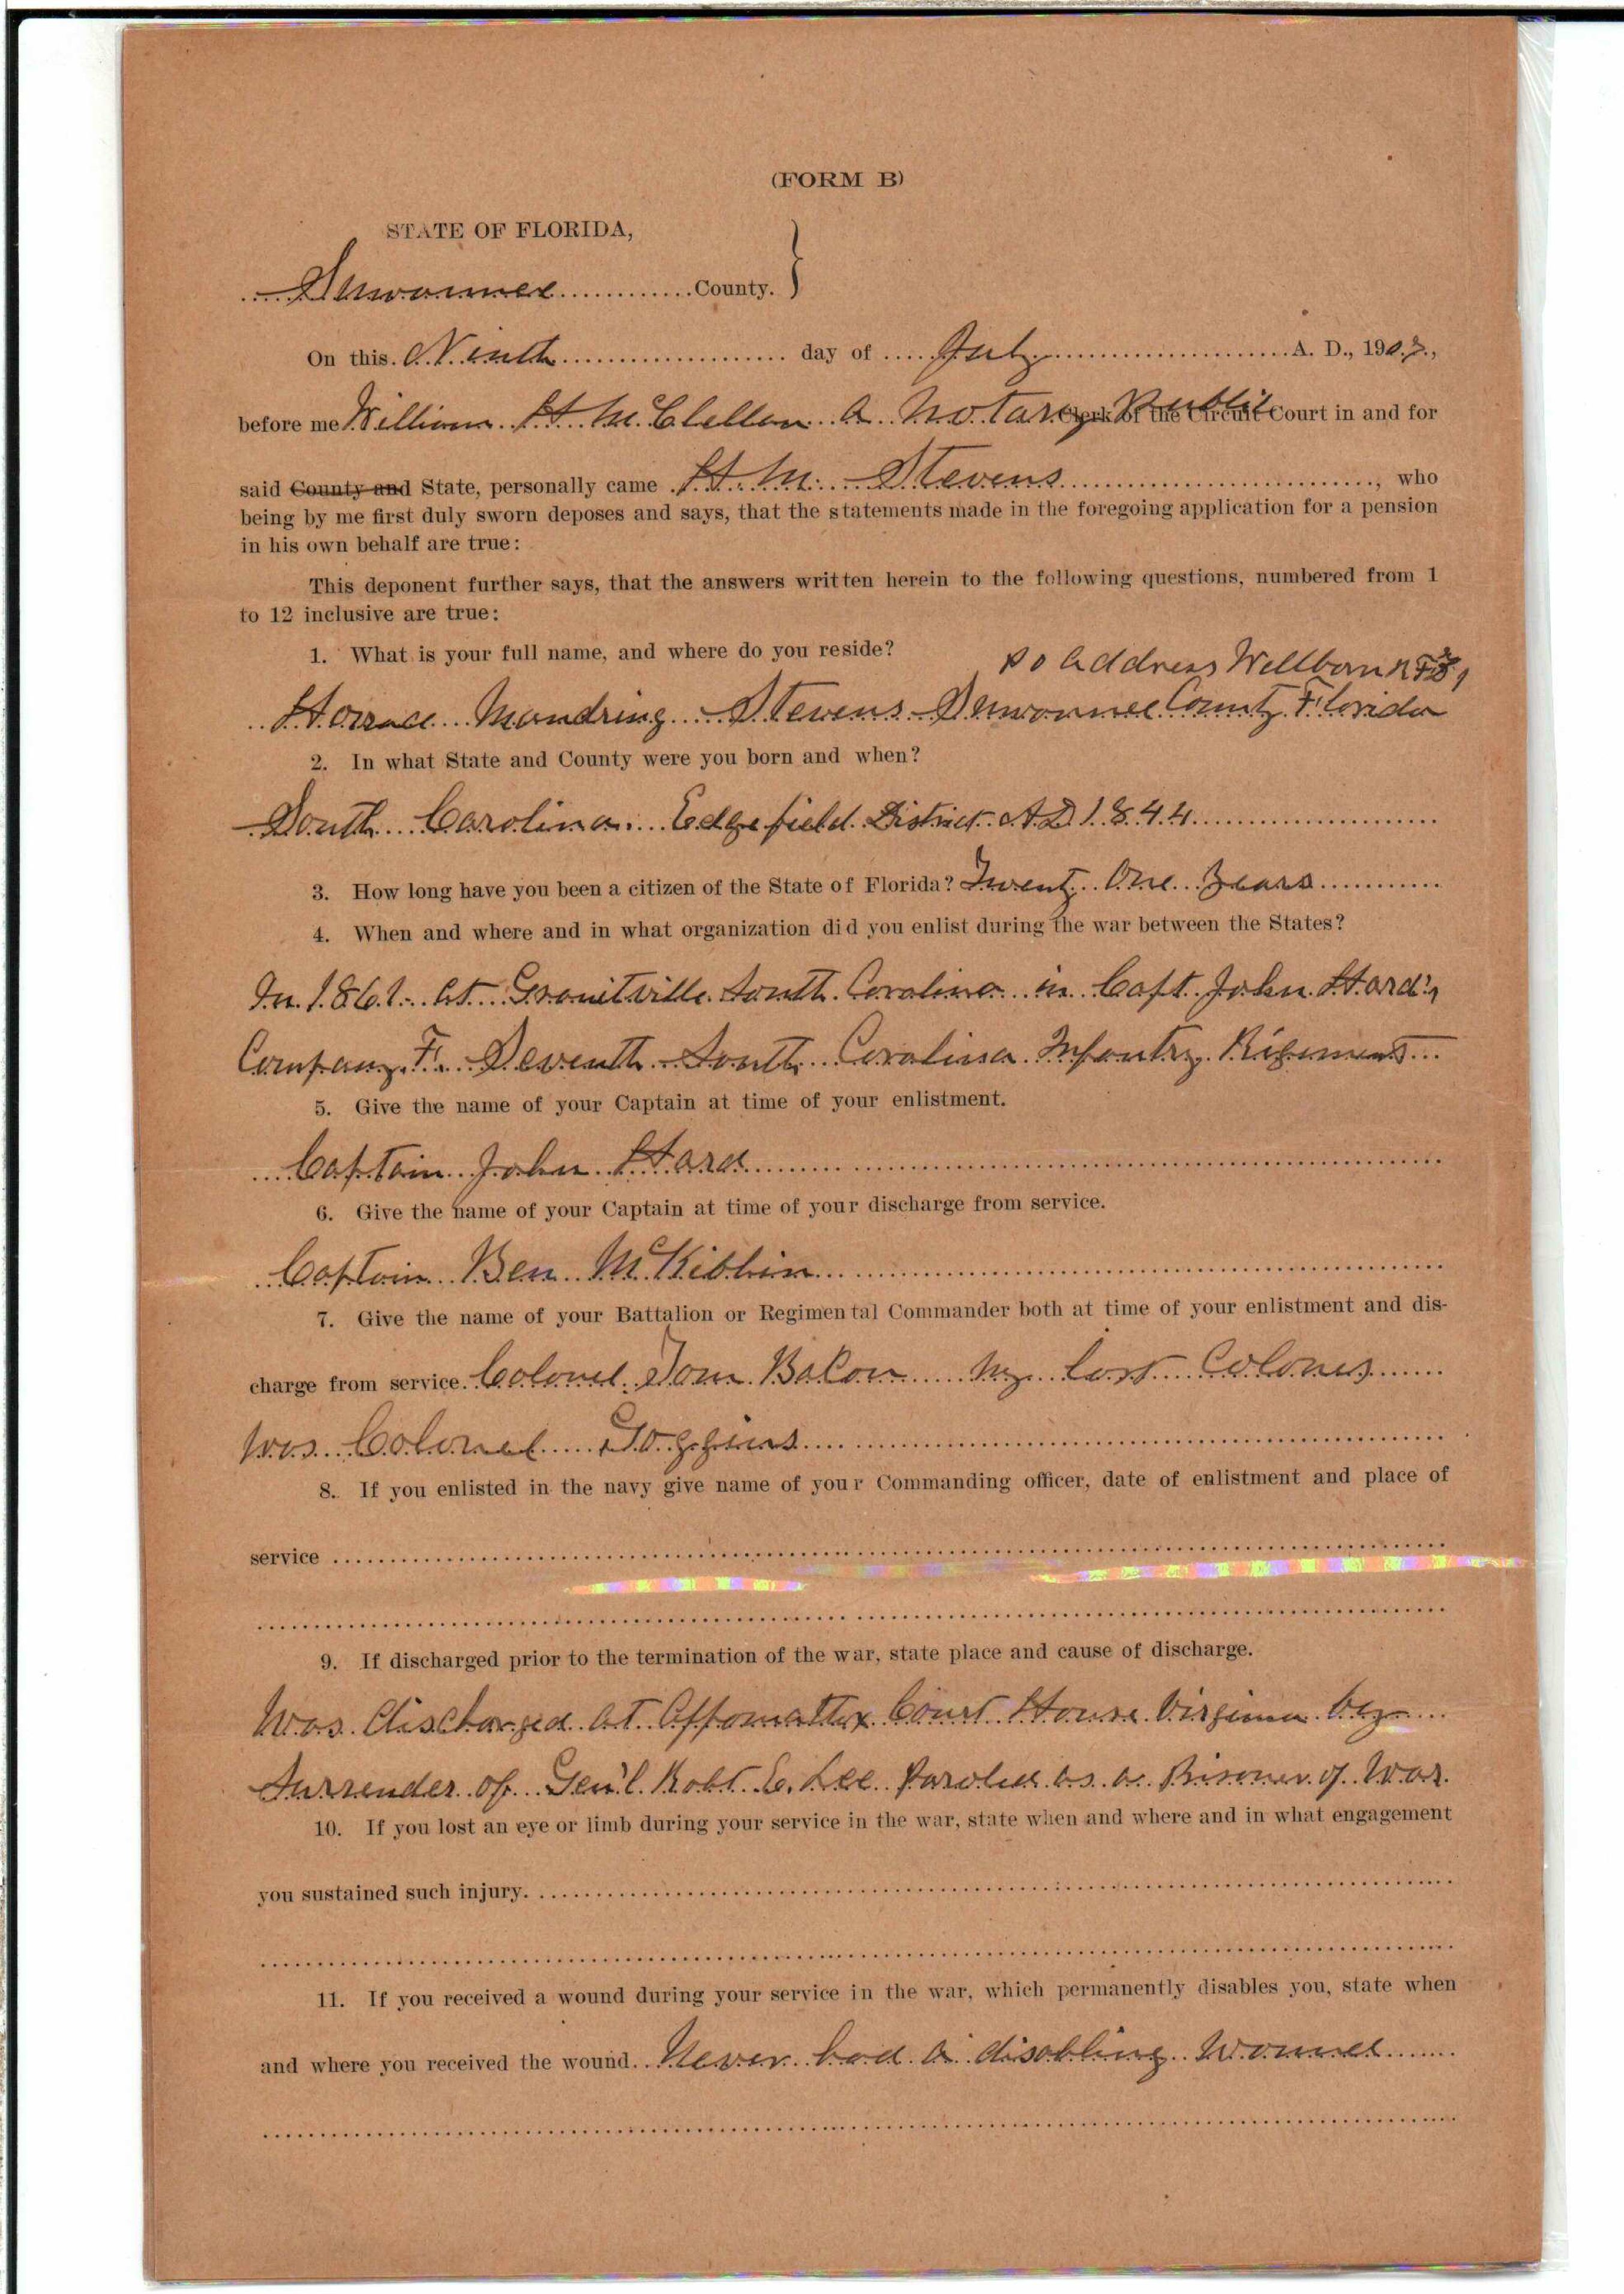 (FORM B)
STATE OF FLORIDA,
Suwannee County.
On this Ninth day of July A. D., 1907,
before me William H McClellan a Notary Public Clerk of the Circuit Court in and for
said County and State, personally came H. M. Stevens, who
being by me first duly sworn deposes and says, that the statements made in the foregoing application for a pension
in his own behalf are true:
This deponent further says, that the answers written herein to the following questions, numbered from 1
to 12 inclusive are true:
1. What is your full name, and where do you reside?
PO Address Wellborn
Horrace Mandring Stevens Suwannee County Florida
2. In what State and County were you born and when?
South Carolina Edgefield District AD 1844
3. How long have you been a citizen of the State of Florida? Twenty One Years
4. When and where and in what organization did you enlist during the war between the States?
In 1861 at Granitville South Carolina in Capt. John Hard's
Company F. Seventh South Carolina Infantry Regiment
5. Give the name of your Captain at time of your enlistment.
Captain John Hard
6. Give the name of your Captain at time of your discharge from service.
Captain Ben McKibbin
7. Give the name of your Battalion or Regimental Commander both at time of your enlistment and dis-
charge from service. Colonel Tom Bacon My last Colonel
Was Colonel Goggins
8. If you enlisted in the navy give name of your Commanding officer, date of enlistment and place of
service
9. If discharged prior to the termination of the war, state place and cause of discharge.
Was Discharged at Appomattox Court House Virginia by
Surrender of Gen'l Robt E. Lee Paroled as a Prisoner of War.
10. If you lost an eye or limb during your service in the war, state when and where and in what engagement
you sustained such injury.
11. If you received a wound during your service in the war, which permanently disables you, state when
and where you received the wound. Never had a disabling wound